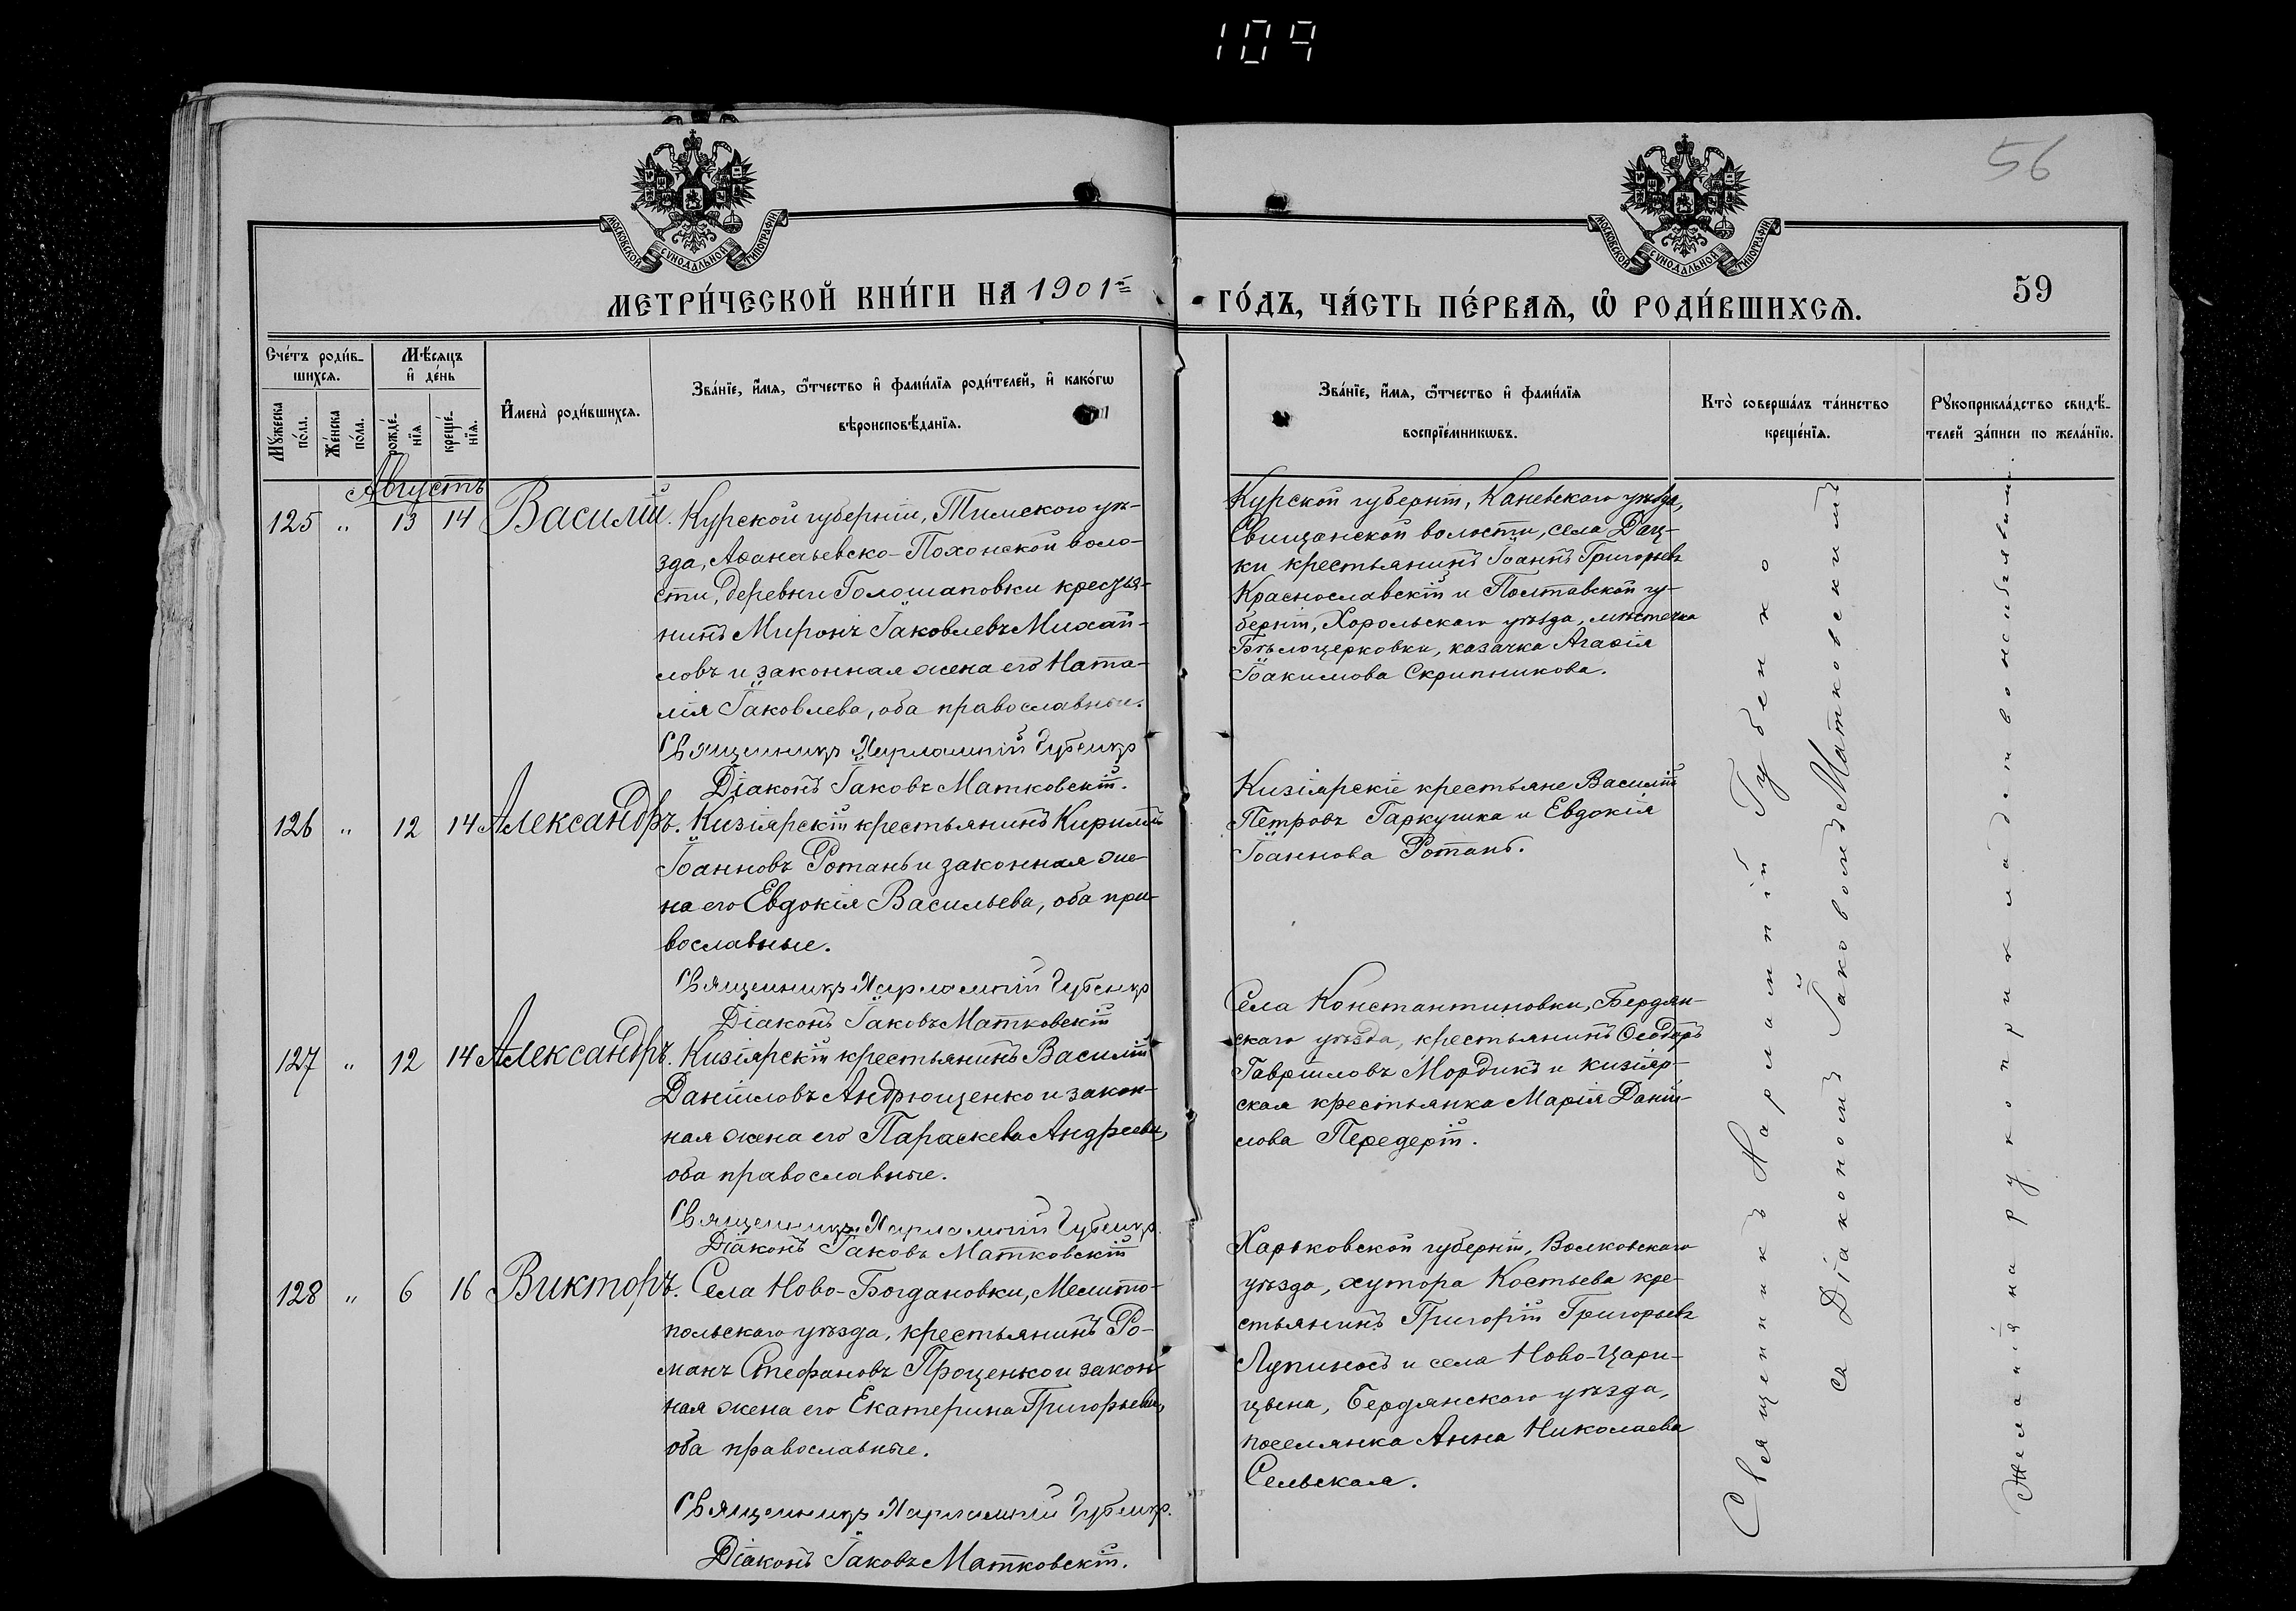 109
56
МОСКОВСКОЙ СѴНОДАЛЬНОЙ ТИПОГРАФІИ
МОСКОВСКОЙ СѴНОДАЛЬНОЙ ТИПОГРАФІИ
МЕТРИ́ЧЕСКОЙ КНИ́ГИ НА 1901й
ГО́ДЪ, ЧА́СТЬ ПЕ́РВАѦ, Ѡ҆ РОДИ́ВШИХСѦ.
59
Сче́тъ роди́в-
шихсѧ.
Мѣ́сѧцъ
и҆ де́нь
Мꙋ́жеска
по́ла.
Же́нска
по́ла.
рожде́-
нїѧ
креще́-
нїѧ.
И҆мена̀ роди́вшихсѧ.
Зва́нїе, и҆́мѧ, ѻ҆́тчество и҆ фами́лїѧ роди́телей, и҆ како́гѡ
вѣроисповѣ́данїѧ.
Зва́нїе, и҆́мѧ, ѻ҆́тчество и҆ фами́лїѧ
воспрїе́мникѡвъ.
Кто̀ соверша́лъ та́инство
креще́нїѧ.
Рꙋкоприкла́дство свидѣ́-
телей за́писи по жела́нїю.
Августъ
125 " 13 14 Василій. Курской губерніи, Тимскаго уѣ-
зда, Аѳанасьевско-Похонской воло-
сти, деревни Голошаповки крестья-
нинъ Миронъ Іаковлевъ Михай-
ловъ и законная жена его Ната-
лія Іаковлева, оба православные.
Священникъ Харлампій Губенко
Діаконъ Іаковъ Матковскій.
Курской губерніи, Каневскаго уѣзда,
Свищанской волости, села Дац-
ки крестьянинъ Іоаннъ Григорьевъ
Краснославскій и Полтавской гу-
берніи, Хорольскаго уѣзда, мѣстечка
Бѣлоцерковки, казачка Агаѳія
Іоакимова Скрипникова.
126 " 12 14 Александръ. Кизіярскій крестьянинъ Кириллъ
Іоанновъ Ротань и законная же-
на его Евдокія Васильева, оба пра-
вославные.
Священникъ Харлампій Губенко
Діаконъ Іаковъ Матковскій
Кизіярскіе крестьяне Василій
Петровъ Гаркушка и Евдокія
Іоаннова Ротань.
127 " 12 14 Александръ. Кизіярскій крестьянинъ Василій
Даніиловъ Андрющенко и закон-
ная жена его Параскева Андреева,
оба православные.
Священникъ Харлампій Губенко
Діаконъ Іаковъ Матковскій
Села Константиновки, Бердян-
скаго уѣзда, крестьянинъ Ѳеодоръ
Гавріиловъ Мордикъ и кизіяр-
ская крестьянка Марія Даніи-
лова Передерій.
128 " 6 16 Викторъ. Села Ново-Богдановки, Мелито-
польскаго уѣзда, крестьянинъ Ро-
манъ Стефановъ Проценко и закон-
ная жена его Екатерина Григорьева,
оба православные.
Священникъ Харлампій Губенко.
Діаконъ Іаковъ Матковскій.
Харьковской губерніи, Волковскаго
уѣзда, хутора Костьева кре-
стьянинъ Григорій Григорьевъ
Лупиносъ и села Ново-Цари-
цына, Бердянскаго уѣзда,
поселянка Анна Николаева
Сельская.
Священникъ Харлампій Губенко
съ Діакономъ Іаковомъ Матковскимъ
Желанія на рукоприкладство неизъявили.